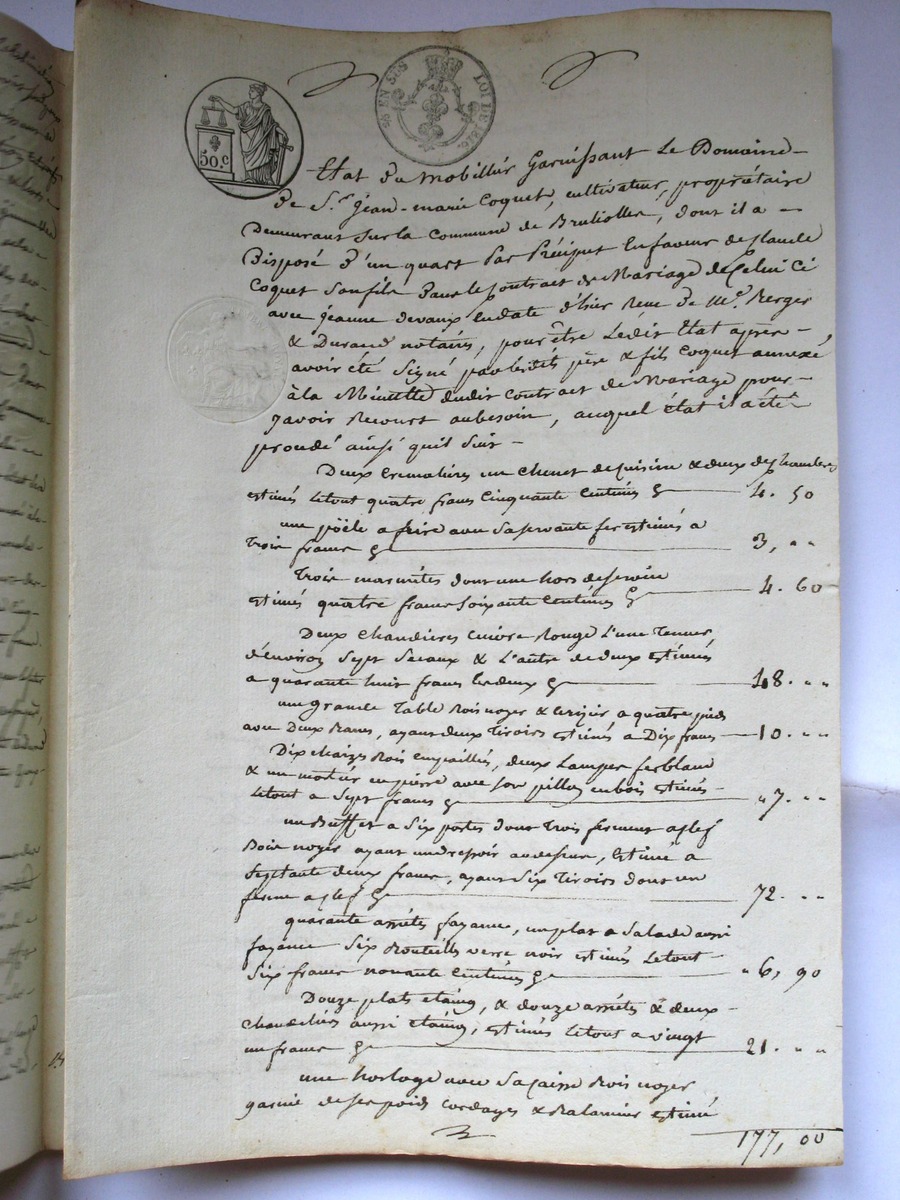 50.c
EN SUS
LOI DE 1816.
Etat Du Mobillier Garnissant Le Domaine
De S.r Jean-marie Coquet, cultivateur, propriétaire
Demeurant Sur la Commune de Brullolles, dont il a
Disposé D'un quart Par Préciput En faveur de Claude
Coquet Son fils Dans le Contract de Mariage de Celui Ci
avec Jeanne devaux En date d'hier Reçu De M.es Berger
& Durand notaires, pour être Ledit Etat après
avoir été Signé par lesdits père & fils Coquet annexé
à la Minutte dudit Contract de Mariage pour
y avoir Recourt au besoin, auquel état il a été
procédé ainsi quil Suit
Deux Cremalières un Chenet de Cuisine & deux de Chambres
estimés Letout quatre francs Cinquante Centimes 4. 50
une poële a frire avec Sa servante fer estimés a
Trois francs 3, " "
Trois marmites dont une hors de Service
Estimés quatre francs Soixante Centimes 4. 60
Deux Chaudieres Cuivre Rouge L'une Tenant
d'environ Sept Seaux & L'autre de deux estimés
a quarante huit francs les deux 48. " "
une grande Table Bois noyer & Cerisier a quatre pieds
avec Deux Bancs, ayant deux Tiroirs estimés a Dix francs 10. " "
Dix Chaizes Bois Empaillés, deux Lampes ferblanc
& un mortier en pierre avec son pillon en bois estimés
Letout a Sept francs " 7. " "
un Buffet a Six portes dont Trois ferment a Clef
Bois noyer ayant un dressoir au dessus, Estimé a
Septante deux francs, ayant Six Tiroirs dont un
ferme a Clef 72. " "
quarante assiétes fayance, un plat a Salade aussi
fayance Six Bouteilles verre noir estimés Letout
Six francs nonante Centimes " 6, 90
Douze plats etaing, & douze assiétes & deux
Chandeliés aussi Etaing, estimés Letout a vingt
un francs 21. " "
une horloge avec Sa Caisse Bois noyer
garnie de Ses poids Cordages & Balancier estimé
177, 00